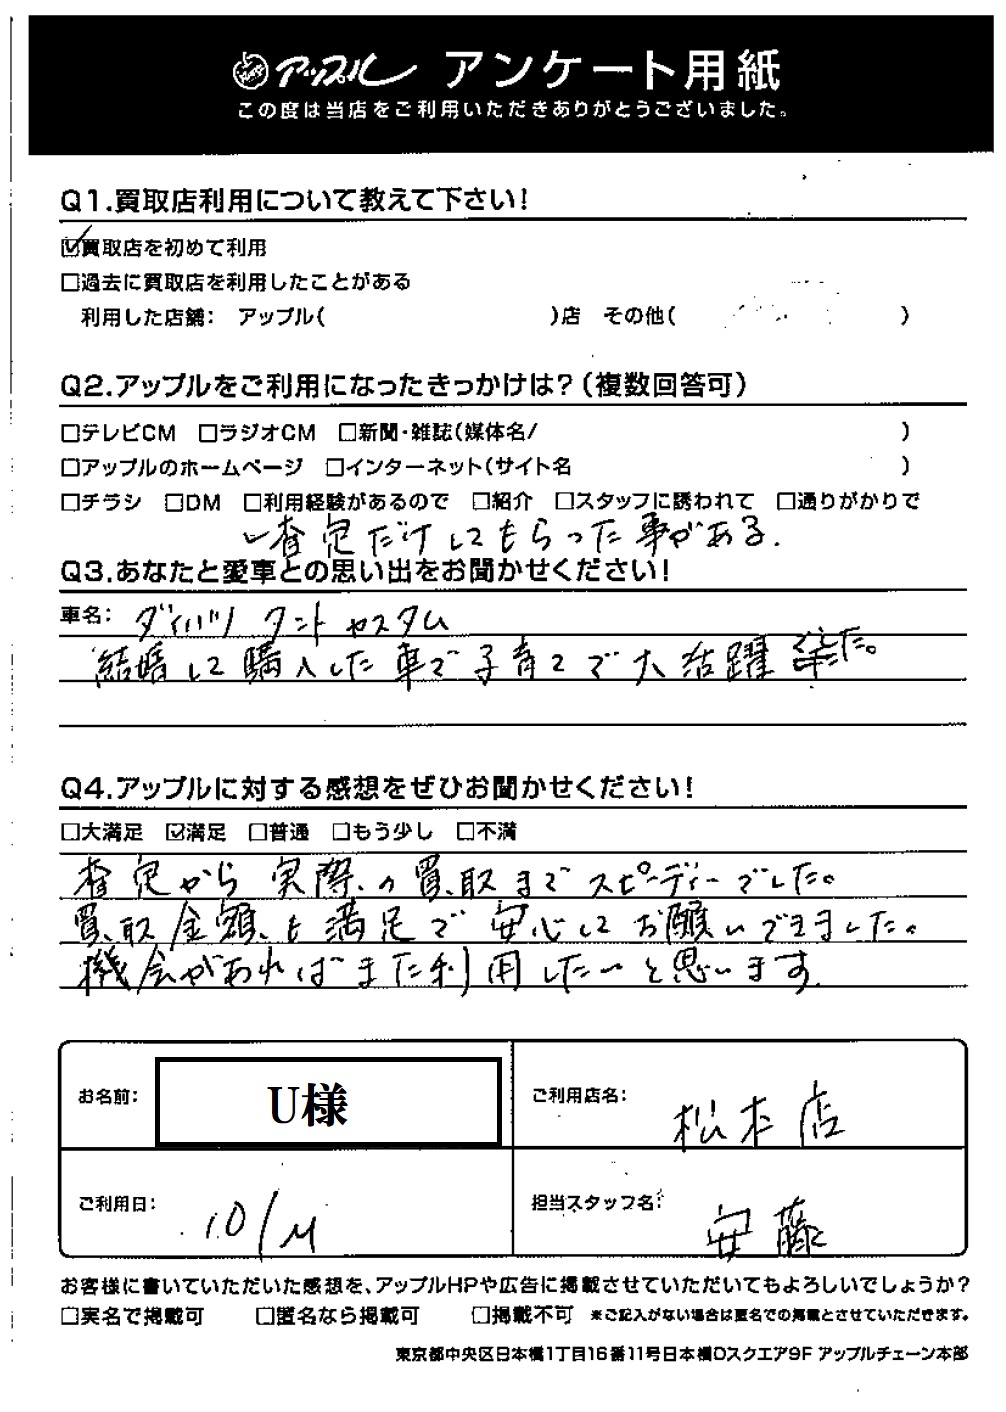 アップル アンケート用紙
この度は当店をご利用いただきありがとうございました。
Q1.買取店利用について教えて下さい!
☑買取店を初めて利用
□過去に買取店を利用したことがある
利用した店舗: アップル( )店 その他( )
Q2.アップルをご利用になったきっかけは?(複数回答可)
□テレビCM □ラジオCM □新聞・雑誌(媒体名/ )
□アップルのホームページ □インターネット(サイト名 )
□チラシ □DM □利用経験があるので □紹介 □スタッフに誘われて □通りがかりで
査定だけしてもらった事がある.
Q3.あなたと愛車との思い出をお聞かせください!
車名: ダイハツ タント カスタム
結婚して購入した車で子育てで大活躍でした。
Q4.アップルに対する感想をぜひお聞かせください!
□大満足 ☑満足 □普通 □もう少し □不満
査定から実際の買取までスピーディーでした。
買取金額も満足で安心してお願いできました。
機会があればまた利用したいと思います.
お名前: U様
ご利用店名: 松本店
ご利用日: 10/
担当スタッフ名: 安藤
お客様に書いていただいた感想を、アップルHPや広告に掲載させていただいてもよろしいでしょうか?
□実名で掲載可 □匿名なら掲載可 □掲載不可 ※ご記入がない場合は匿名での掲載とさせていただきます。
東京都中央区日本橋1丁目16番11号日本橋Dスクエア9F アップルチェーン本部